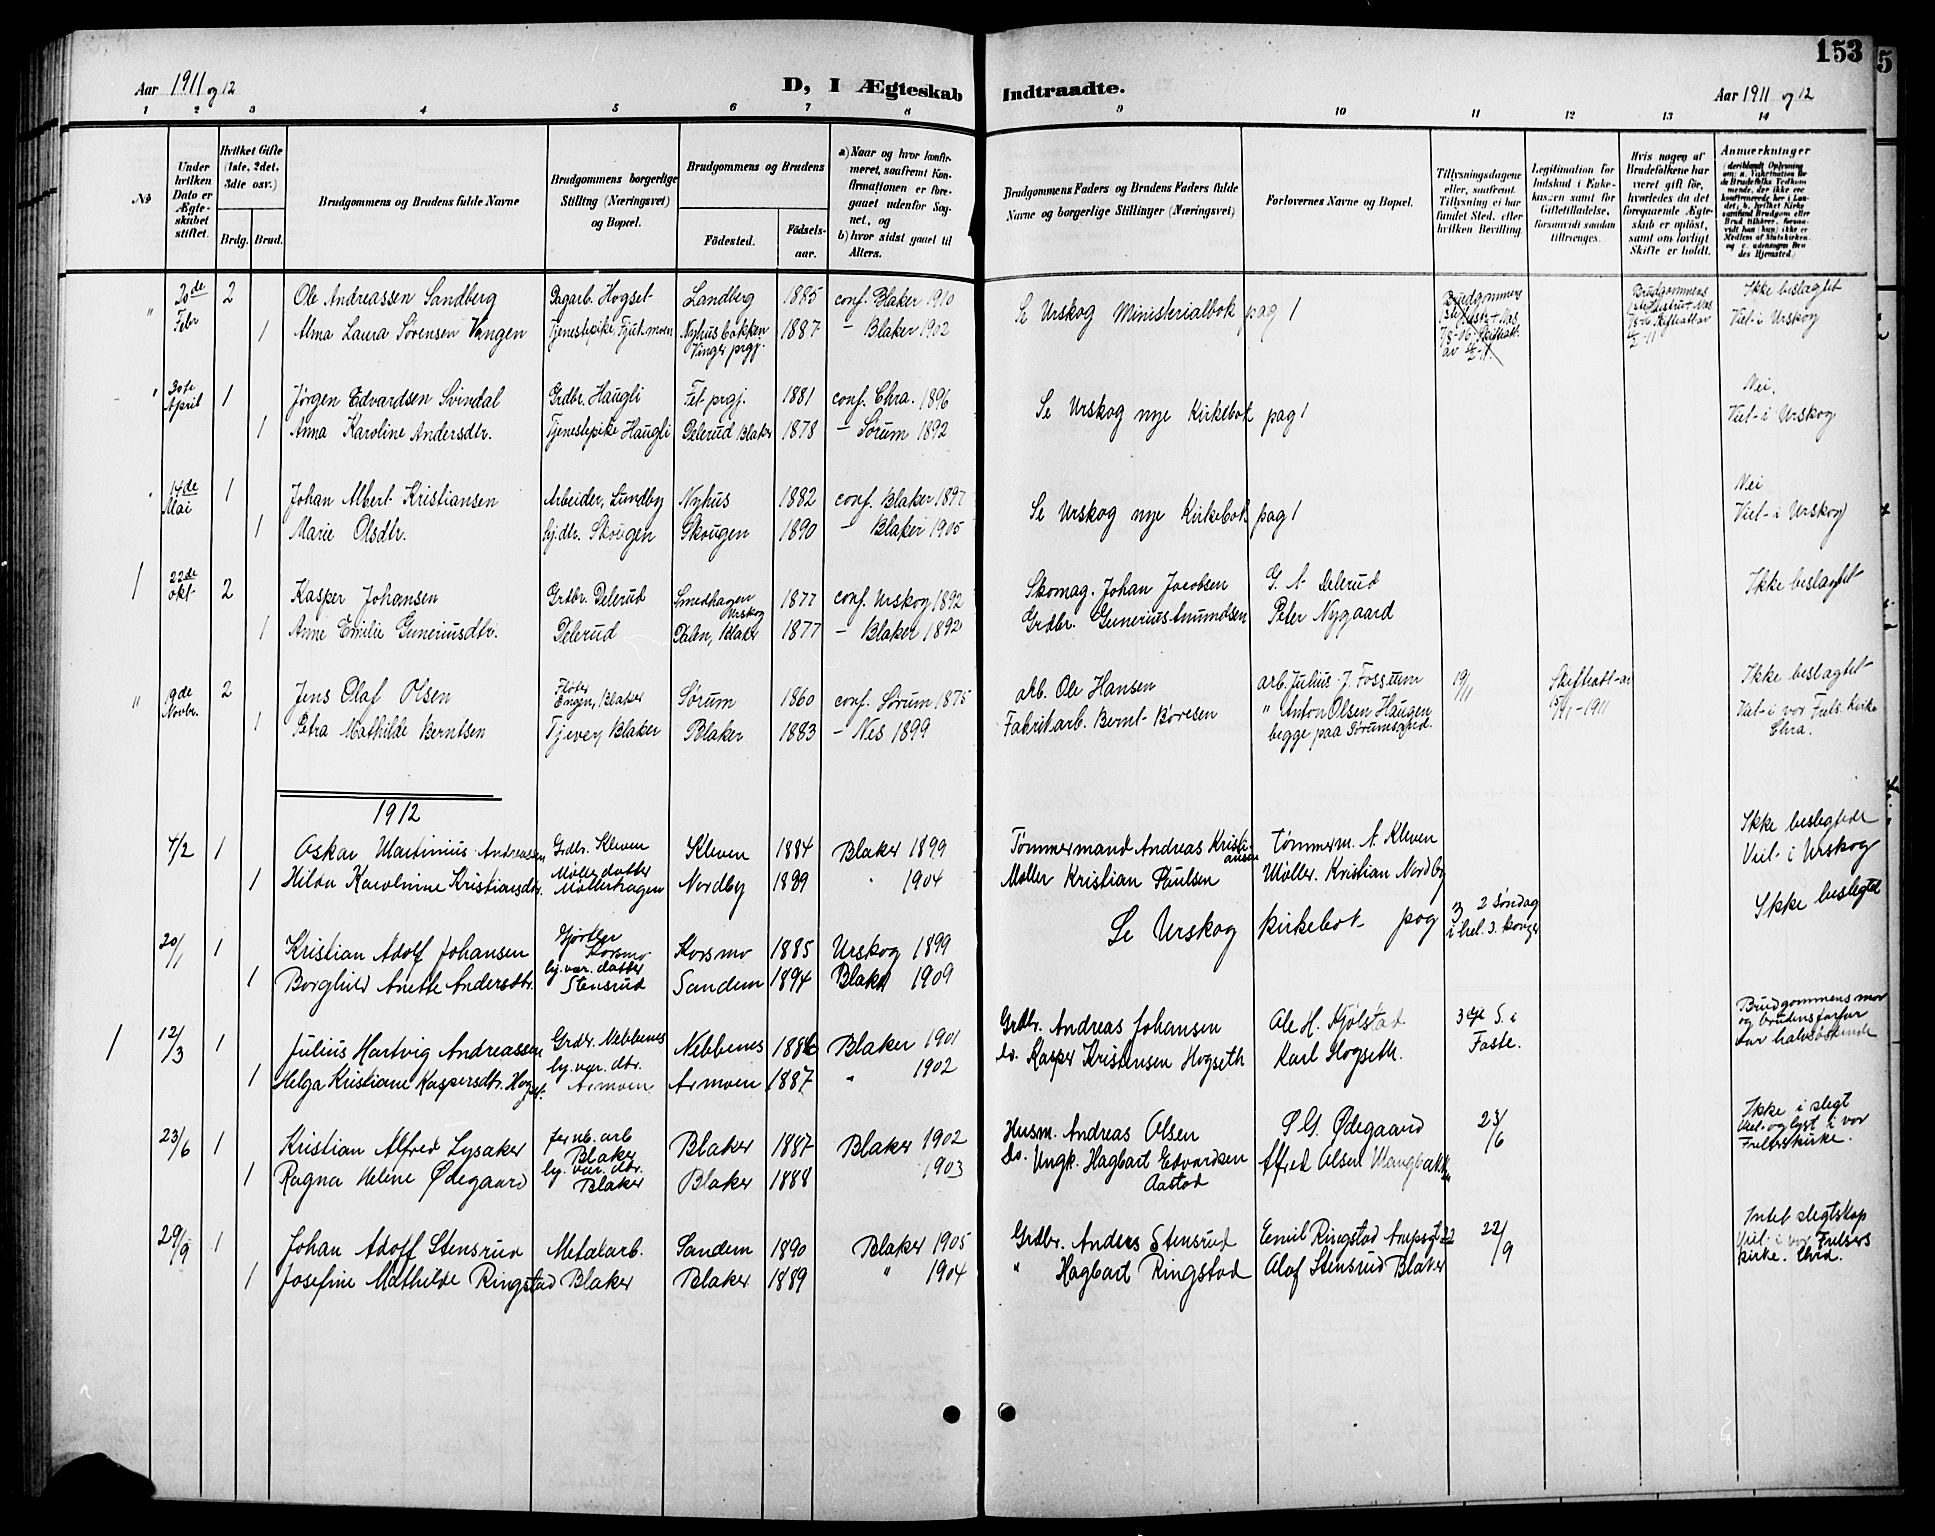 153
5
Aar 1911 og 12
D, I Ægteskab Indtraadte.
Aar 1911 og 12
1 2 3 4 5 6 7 8 9 10 11 12 13 14
No
Under hvilken Dato er Ægteskabet stiftet.
Hvilket Gifte (1ste, 2det, 3die osv.)
Brdg. Brud.
Brudgommens og Brudens fulde Navne
Brudgommens borgerlige Stilling (Næringsvei) og Bopæl.
Brudgommens og Brudens
Födested. Födselsaar.
a) Naar og hvor konfirmeret, saafremt Konfirmationen er foregaaet udenfor Sognet, og
b) hvor sidst gaaet til Alters.
Brudgommens Faders og Brudens Faders fulde Navne og borgerlige Stillinger (Næringsvei)
Forlovernes Navne og Bopæl.
Tillysningsdagene eller, saafremt Tillysning ei har fundet Sted, efter hvilken Bevilling.
Legitimation for Indskud i Enkekassen samt for Giftetilladelse, forsaavidt saadan tiltrænges.
Hvis nogen af Brudefolkene har været gift för, hvorledes da det foregaaende Ægteskab er oplöst, samt om lovligt Skifte er holdt.
Anmærkninger
20de Febr 2 Ole Andreassen Sandberg Dagarb. Hogset Sandberg 1885 conf. Blaker 1910 Se Urskog Ministerialbok pag 1 Ikke beslagtet
1 Alma Laura Sørensen Vangen Tjenestepike, Fjutmoen Nyhusbakken Vinger prgj. 1887 – Blaker 1902 Viet i Urskog
30te April 1 Jørgen Edvardsen Svindal Grdbr. Haugli Fet prgj. 1881 conf. Chra. 1896 Se Urskog nye Kirkebok pag 1 Nei.
1 Anna Karoline Andersdtr. Tjenestepike Haugli Delerud Blaker 1878 – Sørum 1892 Viet i Urskog
14de Mai 1 Johan Albert Kristiansen Arbeider, Lundby Nyhus 1882 conf. Blaker 1897 Se Urskog nye Kirkebok pag 1 Nei
1 Marie Olsdtr. Gj.dtr. Skougen Skougen 1890 – Blaker 1905 Viet i Urskog
1 22de Okt 2 Kasper Johansen Grdbr. Delerud Smedhagen Urskog 1877 conf. Urskog 1892 Skomag. Johan Jacobsen G. A. Delerud Ikke beslagtet
1 Anne Emilie Gunneriusdtr. Delerud Dalen, Blaker 1877 – Blaker 1892 Grdbr. Gunerius Amundsen Peter Nygaard
" 9de Novbr. 2 Jens Olaf Olsen Fløter Engen, Blaker Sørum 1860 conf. Sørum 1875 Arb. Ole Hansen arb. Julius J. Fossum 19/11 Skifteatt. av 1911 Ikke beslagtet
1 Petra Mathilde Berntsen Tjever, Blaker Blaker 1883 – Nes 1899 Fabrikarb. Bernt Børesen " Anton Olsen Haugen begge paa Sørumsand. Viet i vor Frels. Kirke Chra.
1912
4/2 1 Oskar Martinius Andreassen Grdbr. Kleven Kleven 1884 Blaker 1899 Tømmermand Andreas Kristiansen Tømmerm. A. Kleven Ikke beslegtede
1 Hilda Karolnine Kristiansdtr. Møller datter Møllerhagen Nordby 1889 " 1904 Møller Kristian Paulsen Møller. Kristian Nordby Viet i Urskog
20/1 1 Kristian Adolf Johansen Korsmo Korsmo 1885 Urskog 1899 Se Urskog kirkebok pag 3 2 søndag i hel. 3. konger Ikke beslegtd
1 Borghild Anette Andersdtr. hj.vær. datter Stensrud Sandem 1894 Blaker 1909
1 12/3 1 Julius Hartvig Andreassen Grdbr. Nebbenes Nebbenes 1886 Blaker 1901 Grdbr. Andreas Johansen Ole H. Kjølstad 3die S. i Faste. Brudgommens mor og brudens farfar var halvsøskende
1 Helga Kristiane Kaspersdtr. Hogset. hj.vær. dtr. Armoen Armoen 1887 " 1902 do. Kasper Kristensen Hogseth Karl Hogseth.
23/6 1 Kristian Alfred Lysaker jernb.arb Blaker Blaker 1887 Blaker 1902 Husm. Andreas Olsen O G. Ødegaard 23/6 Ikke i slegt Viet og lyst i vor Frelserskirke.
1 Ragna Helene Ødegaard hj. vær. dtr. Blaker Blaker 1888 1903 do. Ungk. Hagbart Edvardsen Aastad Alfred Olsen
29/9 1 Johan Adolf Stensrud Metalarb. Sandem 1890 Blaker 1905 Grdbr. Anders Stensrud Emil Ringstad 22/9 Intet slegtskap Viet i vor Frelsers kirke.
1 Josefine Mathilde Ringstad Blaker Blaker 1889 " 1904 " Hagbart Ringstad Olaf Stensrud Blaker